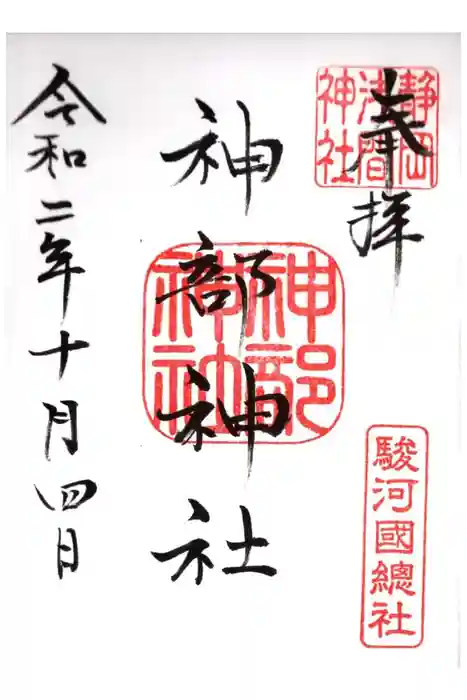 奉拝
静岡
浅間
神社
駿河國總社
神部神社
神部
神社
令和二年十月四日